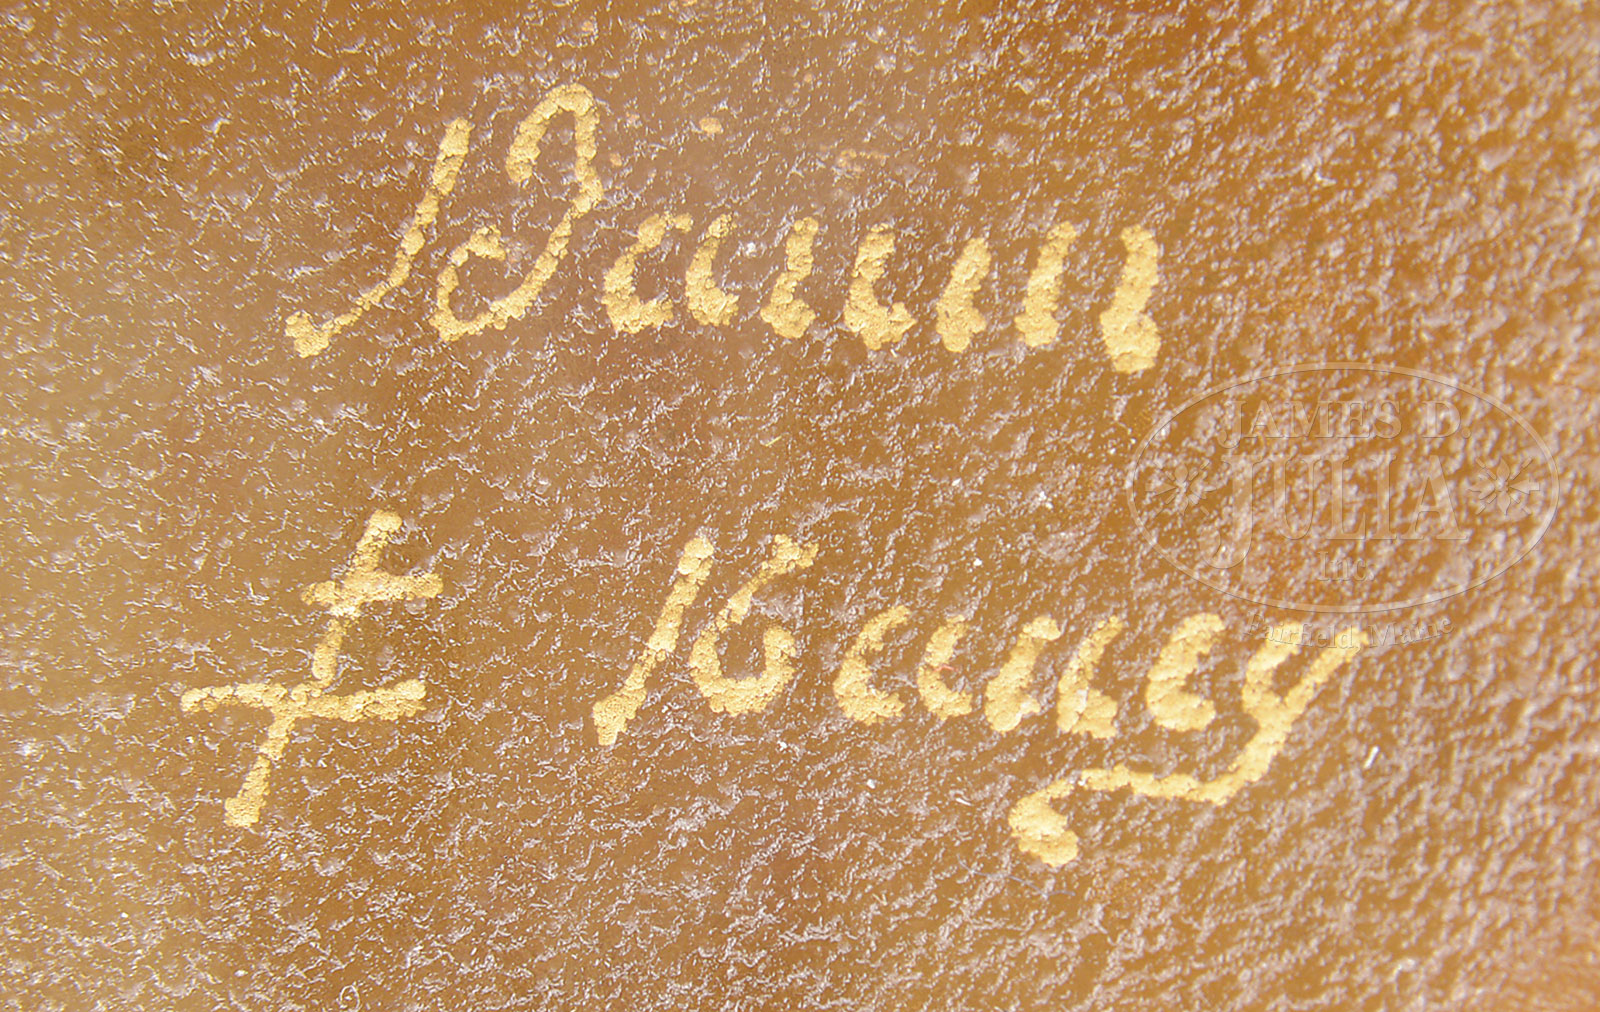 Daum
‡ Nancy
JAMES D.
JULIA
Inc.
Fairfield Maine